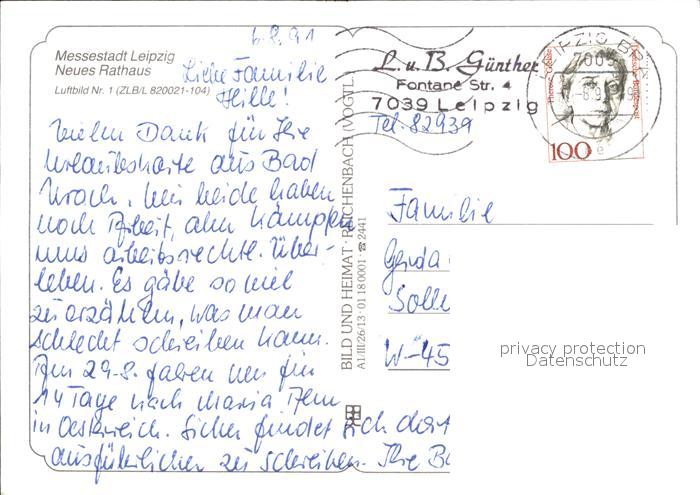 Messestadt Leipzig
Neues Rathaus
Luftbild Nr. 1 (ZLB/L 820021-104)
6.8.91
Liebe Familie
Hille!
Vielen Dank für Ihre
Urlaubskarte aus Bad
Urach. Wir beide haben
noch Arbeit, aber kämpfen
ums arbeitsrechtl. Über-
leben. Es gäbe so viel
zu erzählen, was man
schlecht schreiben kann.
Am 29.8. fahren wir für
14 Tage nach Maria Alm
in Oesterreich. Sicher findet sich dort
ausführlicher zu schreiben. Ihre
BILD UND HEIMAT · REICHENBACH (VOGTL.)
A1/III/26/13 · 01 18 0001 · ☎ 2441
L. u. B. Günther
Fontane Str. 4
7039 Leipzig
Tel. 82939
LEIPZIG
100
Familie
Gerda
Solle
W-45
privacy protection
Datenschutz